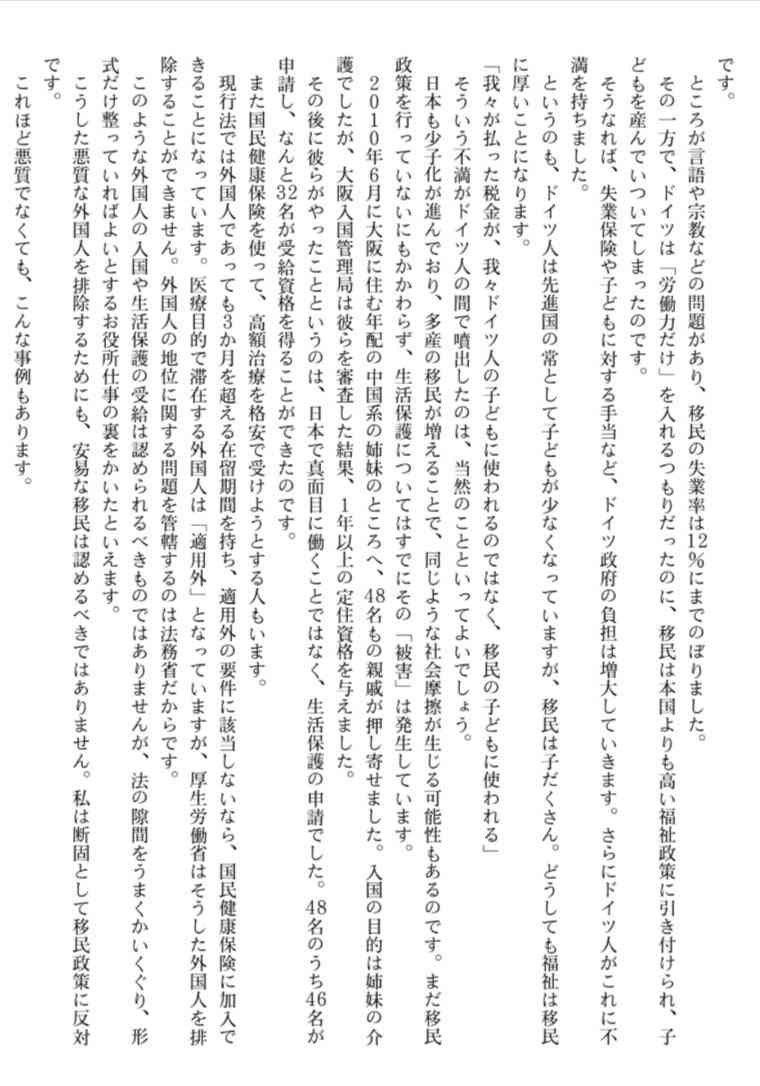 です。
ところが言語や宗教などの問題があり、移民の失業率は12%にまでのぼりました。
その一方で、ドイツは「労働力だけ」を入れるつもりだったのに、移民は本国よりも高い福祉政策に引き付けられ、子
どもを産んでいついてしまったのです。
そうなれば、失業保険や子どもに対する手当など、ドイツ政府の負担は増大していきます。さらにドイツ人がこれに不
満を持ちました。
というのも、ドイツ人は先進国の常として子どもが少なくなっていますが、移民は子だくさん。どうしても福祉は移民
に厚いことになります。
「我々が払った税金が、我々ドイツ人の子どもに使われるのではなく、移民の子どもに使われる」
そういう不満がドイツ人の間で噴出したのは、当然のことといってよいでしょう。
日本も少子化が進んでおり、多産の移民が増えることで、同じような社会摩擦が生じる可能性もあるのです。まだ移民
政策を行っていないにもかかわらず、生活保護についてはすでにその「被害」は発生しています。
2010年6月に大阪に住む年配の中国系の姉妹のところへ、48名もの親戚が押し寄せました。入国の目的は姉妹の介
護でしたが、大阪入国管理局は彼らを審査した結果、1年以上の定住資格を与えました。
その後に彼らがやったことというのは、日本で真面目に働くことではなく、生活保護の申請でした。48名のうち46名が
申請し、なんと32名が受給資格を得ることができたのです。
また国民健康保険を使って、高額治療を格安で受けようとする人もいます。
現行法では外国人であっても3か月を超える在留期間を持ち、適用外の要件に該当しないなら、国民健康保険に加入で
きることになっています。医療目的で滞在する外国人は「適用外」となっていますが、厚生労働省はそうした外国人を排
除することができません。外国人の地位に関する問題を管轄するのは法務省だからです。
このような外国人の入国や生活保護の受給は認められるべきものではありませんが、法の隙間をうまくかいくぐり、形
式だけ整っていればよいとするお役所仕事の裏をかいたといえます。
こうした悪質な外国人を排除するためにも、安易な移民は認めるべきではありません。私は断固として移民政策に反対
です。
これほど悪質でなくても、こんな事例もあります。